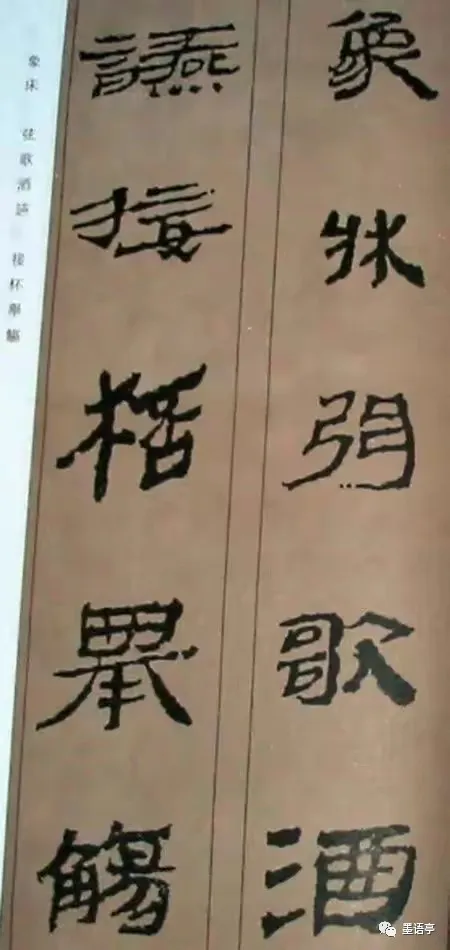 象牀弦歌酒
讌接桮舉觴
象床 弦歌酒讌 接杯舉觴
墨语亭